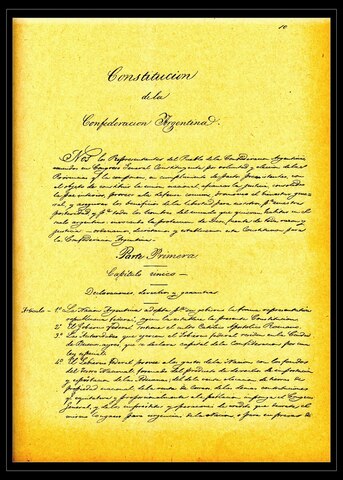 10
Constitucion
de la
Confederacion Argentina.
Nos los Representantes del Pueblo de la Confederacion Argentina,
reunidos en Congreso General Constituyente por voluntad y eleccion de las
Provincias que la componen, en cumplimiento de pactos preexistentes, con
el objeto de constituir la union nacional, afianzar la justicia, consolidar
la paz interior, proveer a la defensa comun, promover el bienestar gene-
ral, y asegurar los beneficios de la libertad para nosotros, pª nuestra
posteridad y pª todos los hombres del mundo que quieran habitar en el
suelo argentino: invocando la proteccion de Dios, fuente de toda razon y
justicia: ordenamos, decretamos y establecemos esta Constitucion para
la Confederacion Argentina.
Parte Primera
Capitulo unico
Declaraciones, derechos y garantias
Articulo - 1º La Nacion Argentina adopta pª su gobierno la forma representativa
republicana federal, segun la establece la presente Constitucion.
2º El Gobierno Federal sostiene el culto Catolico Apostolico Romano.
3º Las autoridades que ejercen el Gobierno federal residen en la Ciudad
de Buenos Ayres, que se declara capital de la Confederacion por una
ley especial.
4º El Gobierno Federal provee a los gastos de la Nacion con los fondos
del Tesoro Nacional, formado del producto de derechos de importacion
y esportacion de las Aduanas, del de la venta o locacion de tierras de
propiedad nacional, de la renta de Correos, de las demas contribuciones
que equitativa y proporcionalmente a la poblacion imponga el Congreso
General, y de los emprestitos y operaciones de credito que decrete el
mismo Congreso para urgencias de la Nacion o para empresas de